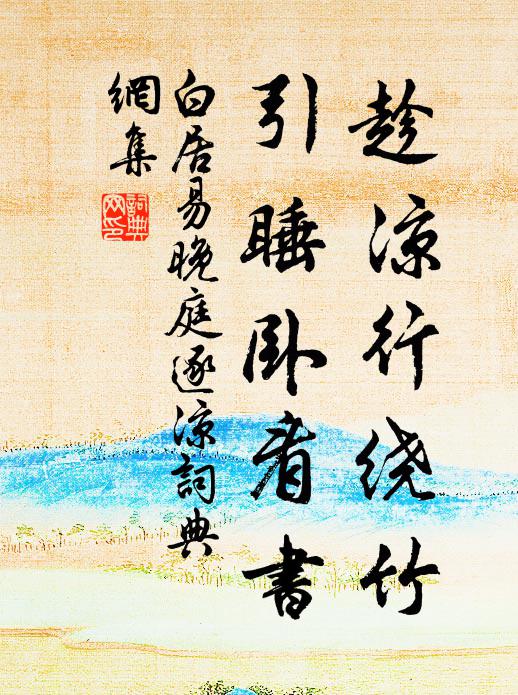 趁凉行绕竹
引睡卧看书
白居易晚庭逐凉詞典
網集
詞典网印